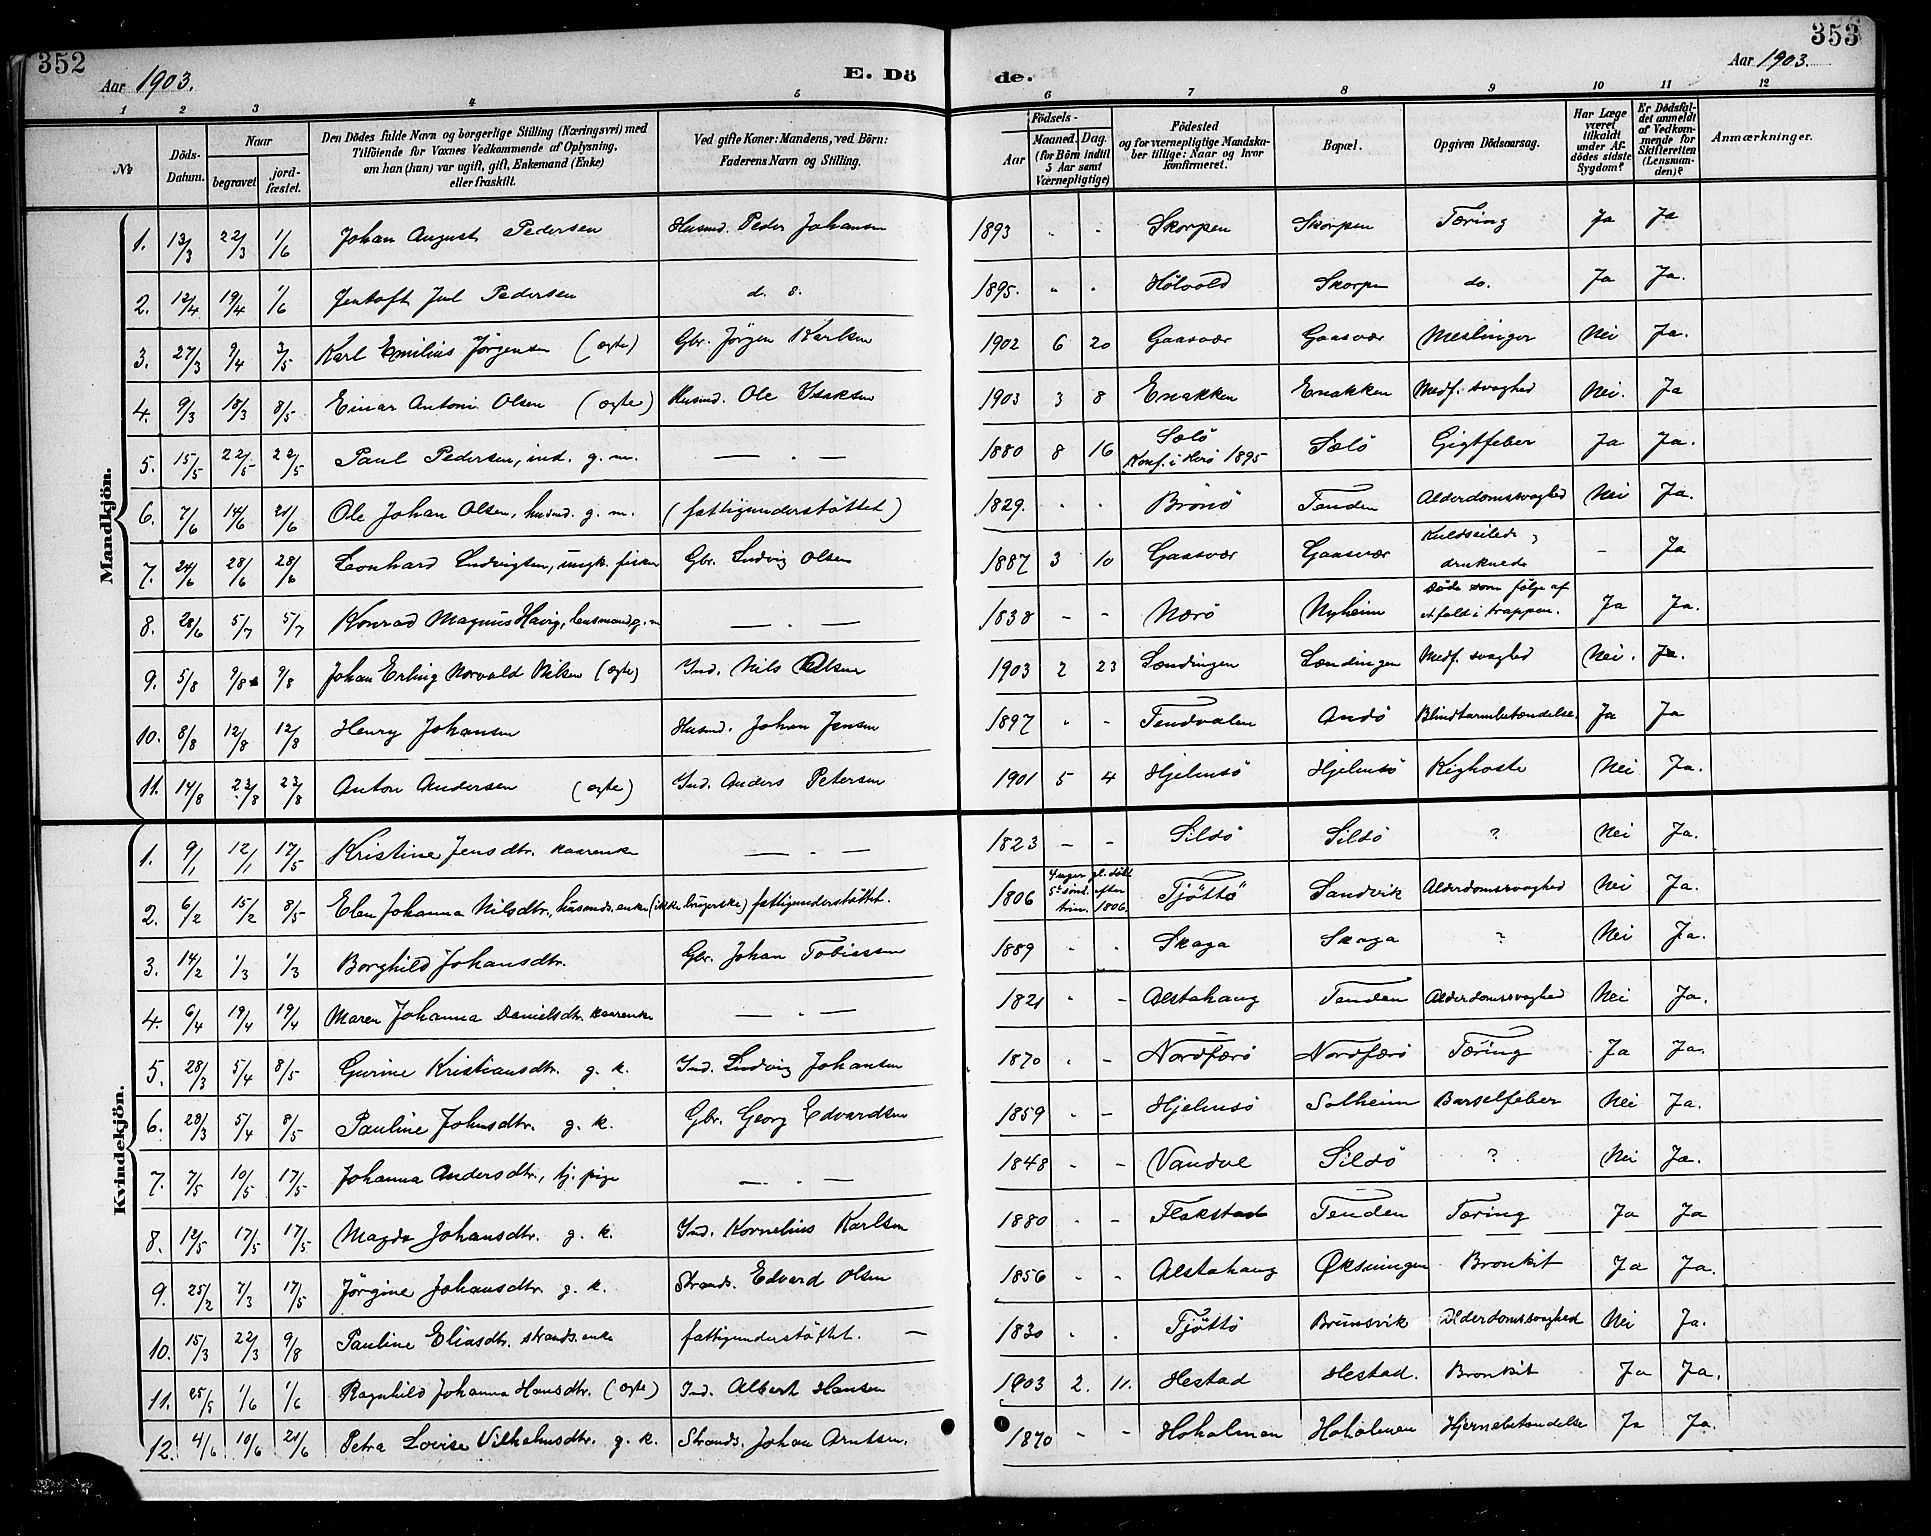 352
353
Aar 1903.
E. Dö
de.
Aar 1903.
1 2 3 4 5 6 7 8 9 10 11 12
No
Döds-Datum.
Naar
begravet
jord-fæstet.
Den Dödes fulde Navn og borgerlige Stilling (Næringsvei) med Tilföiende for Voxnes Vedkommende af Oplysning, om han (hun) var ugift, gift, Enkemand (Enke) eller fraskilt.
Ved gifte Koner: Mandens, ved Börn: Faderens Navn og Stilling.
Födsels-
Aar
Maaned. Dag.
(for Börn indtil 5 Aar samt Værnepligtige)
Födested og for værnepligtige Mandskaber tillige: Naar og hvor konfirmeret.
Bopæl.
Opgiven Dödsaarsag.
Har Læge været tilkaldt under Afdödes sidste Sygdom?
Er Dödsfaldet anmeldt af Vedkommende for Skifteretten (Lensmanden)?
Anmærkninger.
Mandkjön.
1. 13/3 22/3 1/6 Johan August Pedersen Husmd. Peder Johansen 1893 " " Skorpen Skorpen Tæring Ja Ja
2. 12/4 19/4 1/6 Jentoft Jul Pedersen d. s. 1895. " " Hölvold Skorpen do. Ja Ja.
3. 27/3 9/4 3/5 Karl Emilius Jørgensen (ægte) Gbr. Jörgen Karlsen 1902 6 20 Gaasvær Gaasvær Meslinger Nei Ja.
4. 9/3 18/3 8/5 Einar Antoni Olsen (ægte) Husmd. Ole Isaksen 1903 3 8 Enakken Enakken Medf. svaghed Nei. Ja
5. 15/5 22/5 22/5 Paul Pedersen, ind. g. m. — " — 1880 8 16 Sælö Konf. i Herö 1895 Sælö Gigtfeber Ja Ja.
6. 7/6 14/6 21/6 Ole Johan Olsen, husmd. g. m. (fattigunderstöttet) 1829. " " Brönö Tenden Alderdomssvaghed Nei Ja.
7. 24/6 28/6 28/6 Leonhard Ludvigsen, ungk. fisker Gbr. Ludvig Olsen 1887 3 10 Gaasvær Gaasvær Kuldseilede, druknede - Ja
8. 28/6 5/7 5/7 Konrad Magnus Havig, lensmand g. m — " — 1838 - - Nærö Nyheim Döde som fölge af et fald i trappen. Ja Ja.
9. 5/8 9/8 9/8 Johan Erling Norvald Nilsen (ægte) Ind. Nils Olsen 1903 2 23 Sændingen Sændingen Medf. svaghed Nei. Ja.
10. 8/8 12/8 12/8 Henry Johansen Husmd. Johan Jensen 1897 " - Tendvalen Andö Blindtarmbetændelse. Ja Ja
11. 14/8 23/8 23/8 Anton Andersen (ægte) Ind. Anders Petersen 1901 5 4 Hjelmsö Hjelmsö Kighoste Nei Ja.
Kvindekjön.
1. 9/1 12/1 17/5 Kristine Jensdtr. kaarenke — " — 1823 - - Sildö Sildö ? Nei Ja.
2. 6/2 15/2 8/5 Elen Johanna Nilsdtr., husmds. enke (ikke brugerske) fattigunderstöttet. 1806 4 uger gl. döbt 5te sønd. efter trin. 1806. Tjöttö Sandvik Alderdomssvaghed Nei Ja.
3. 14/2 1/3 1/3 Borghild Johansdtr. Gbr. Johan Tobiassen 1889 " " Skaga Skaga ? Nei Ja.
4. 6/4 19/4 19/4 Maren Johanna Danielsdtr. kaarenke — " — 1821 " - Alstahaug Tenden Alderdomssvaghed Nei Ja.
5. 28/3 5/4 8/5 Gurine Kristiansdtr. g. k. Ind. Ludvig Johansen 1870 " - Nordfærö Nordfærö Tæring Ja Ja.
6. 28/3 5/4 8/5 Pauline Johnsdtr. g. k. Gbr. Georg Edvardsen 1859 " - Hjelmsö Solheim Barselfeber Nei Ja.
7. 7/5 10/5 17/5 Johanna Andersdtr., tj. pige — " — 1848 - - Vandve Sildö ? Nei Ja.
8. 12/5 17/5 17/5 Magda Johansdtr. g. k. Ind. Kornelius Karlsen 1880 " - Flakstad Tenden Tæring Ja Ja
9. 25/2 7/3 17/5 Jörgine Johansdtr. g. k. Strands. Edvard Olsen 1856 - - Alstahaug Øksningen Bronkit Ja Ja.
10. 15/3 22/3 9/8 Pauline Eliasdtr. strands. enke fattigunderstöttet. — 1830 " " Tjöttö Brunsvik Alderdomssvaghed Nei Ja.
11. 25/5 1/6 1/6 Ragnhild Johanna Hansdtr. (ægte) Ind. Albert Hansen 1903 2. 11. Hestad Hestad. Bronkit Ja Ja.
12. 4/6 10/6 21/6 Petra Lovise Vilhelmsdtr. g. k. Strands. Johan Arntsen. 1870 - - Hoholmen Hoholmen Hjernebetændelse Ja Ja.